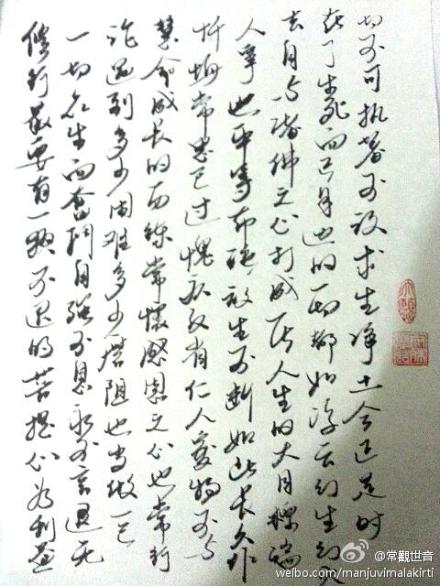 修行最要有一颗不退的菩提心为利益
一切众生而奋斗自强不息永不言退无
论遇到多少困难多少磨阻也当做是
慧命成长的历练常怀感恩之心也常行
忏悔常思己过愧疚反省仁人爱物不与
人争也平等布施放生不断如此长久作
去自与诸佛之心打成一片人生的大目标端
在了生死而已身边的一切都如浮云幻生幻
切不可执着不放求生净土今正是时
@常觀世音
weibo.com/manjuvimalakirti